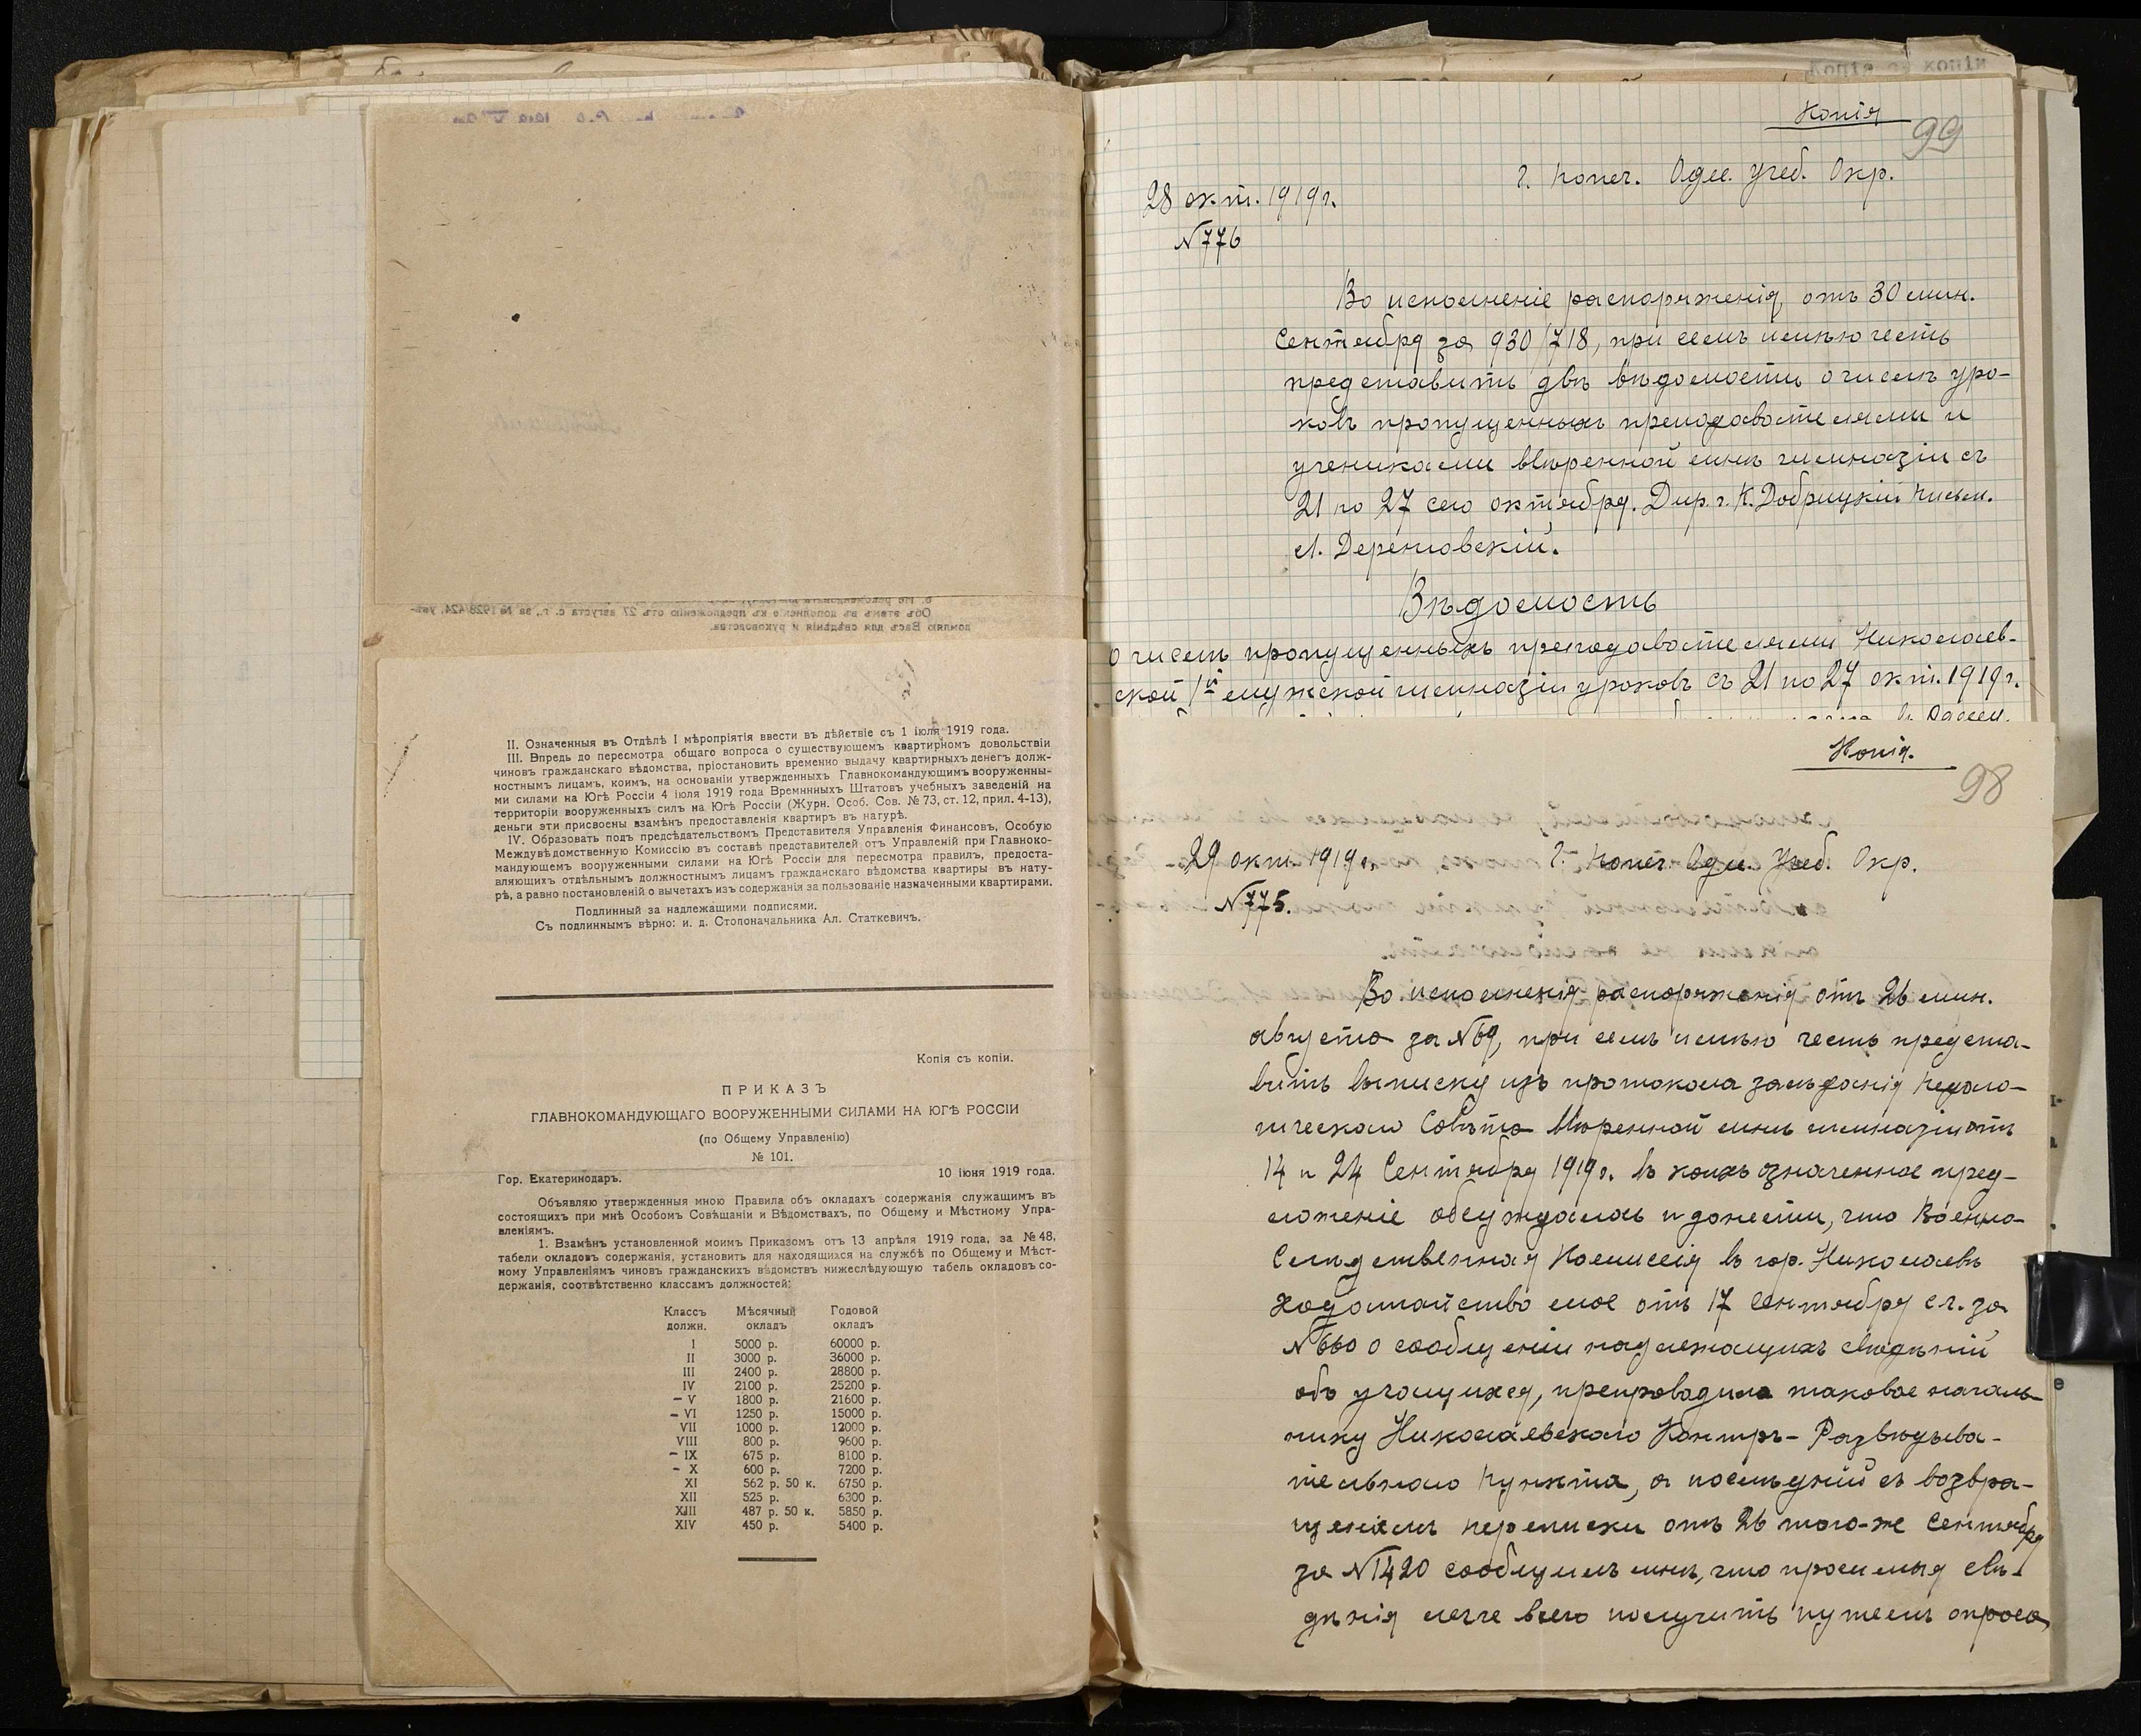 II. Означенныя въ Отдѣлѣ I мѣропріятія ввести въ дѣйствіе съ 1 іюля 1919 года.
III. Впредь до пересмотра общаго вопроса о существующемъ квартирномъ довольствіи
чиновъ гражданскаго вѣдомства, пріостановить временно выдачу квартирныхъ денегъ долж-
ностнымъ лицамъ, коимъ, на основаніи утвержденныхъ Главнокомандующимъ вооруженны-
ми силами на Югѣ Россіи 4 іюля 1919 года Времннныхъ Штатовъ учебныхъ заведеній на
территоріи вооруженныхъ силъ на Югѣ Россіи (Журн. Особ. Сов. № 73, ст. 12, прил. 4-13),
деньги эти присвоены взамѣнъ предоставленія квартиръ въ натурѣ.
IV. Образовать подъ предсѣдательствомъ Представителя Управленія Финансовъ, Особую
Междувѣдомственную Комиссію въ составѣ представителей отъ Управленій при Главноко-
мандующемъ вооруженными силами на Югѣ Россіи для пересмотра правилъ, предоста-
вляющихъ отдѣльнымъ должностнымъ лицамъ гражданскаго вѣдомства квартиры въ нату-
рѣ, а равно постановленій о вычетахъ изъ содержанія за пользованіе назначенными квартирами.
Подлинный за надлежащими подписями.
Съ подлиннымъ вѣрно: и. д. Столоначальника Ал. Статкевичъ.
Копія съ копіи.
ПРИКАЗЪ
ГЛАВНОКОМАНДУЮЩАГО ВООРУЖЕННЫМИ СИЛАМИ НА ЮГѢ РОССІИ
(по Общему Управленію)
№ 101.
Гор. Екатеринодаръ. 10 іюня 1919 года.
Объявляю утвержденныя мною Правила объ окладахъ содержанія служащимъ въ
состоящихъ при мнѣ Особомъ Совѣщаніи и Вѣдомствахъ, по Общему и Мѣстному Упра-
вленіямъ.
1. Взамѣнъ установленной моимъ Приказомъ отъ 13 апрѣля 1919 года, за № 48,
табели окладовъ содержанія, установить для находящихся на службѣ по Общему и Мѣст-
ному Управленіямъ чиновъ гражданскихъ вѣдомствъ нижеслѣдующую табель окладовъ со-
держанія, соотвѣтственно классамъ должностей:
Классъ Мѣсячный Годовой
должн. окладъ окладъ
I 5000 р. 60000 р.
II 3000 р. 36000 р.
III 2400 р. 28800 р.
IV 2100 р. 25200 р.
– V 1800 р. 21600 р.
– VI 1250 р. 15000 р.
VII 1000 р. 12000 р.
VIII 800 р. 9600 р.
– IX 675 р. 8100 р.
– X 600 р. 7200 р.
XI 562 р. 50 к. 6750 р.
XII 525 р. 6300 р.
XIII 487 р. 50 к. 5850 р.
XIV 450 р. 5400 р.
Копія съ копіи
Копія
99
Г. Попеч. Одес. Учеб. Окр.
28 окт. 1919 г.
№ 776
Во исполненіе распоряженія, отъ 30 мин.
Сентября за 930/718, при семъ имѣю честь
представить двѣ вѣдомости о числѣ уро-
ковъ пропущенныхъ преподавателями и
учениками ввѣренной мнѣ гимназіи съ
21 по 27 сего октября. Дир. г. К. Добрицкій Письм.
Л. Дереновскій.
Вѣдомость
о числѣ пропущенныхъ преподавателями Николаев-
ской 1й мужской гимназіи уроковъ съ 21 по 27 окт. 1919 г.
Копія.
98
29 окт. 1919 г. Г. Попеч. Одес. Учеб. Окр.
№ 775.
Во исполненія распоряженія отъ 26 мин.
августа за № 69, при семъ имѣю честь предста-
вить выписку изъ протокола засѣданія Педаго-
гическаго Совѣта ввѣренной мнѣ гимназіи отъ
14 и 24 Сентября 1919 г. въ коихъ означенное пред-
ложеніе обсуждалось и донести, что Военно-
Слѣдственная Комиссія въ гор. Николаевѣ
ходатайство мое отъ 17 сентября с.г. за
№ 660 о сообщеніи надлежащихъ свѣдѣній
объ учащихся, препроводила таковое началь-
нику Николаевскаго Контръ-Развѣдыва-
тельнаго Пункта, а послѣдній съ возвра-
щеніемъ переписки отъ 26 того-же Сентября
за № 1420 сообщилъ мнѣ, что просимыя свѣ-
дѣнія легче всего получить путемъ опроса